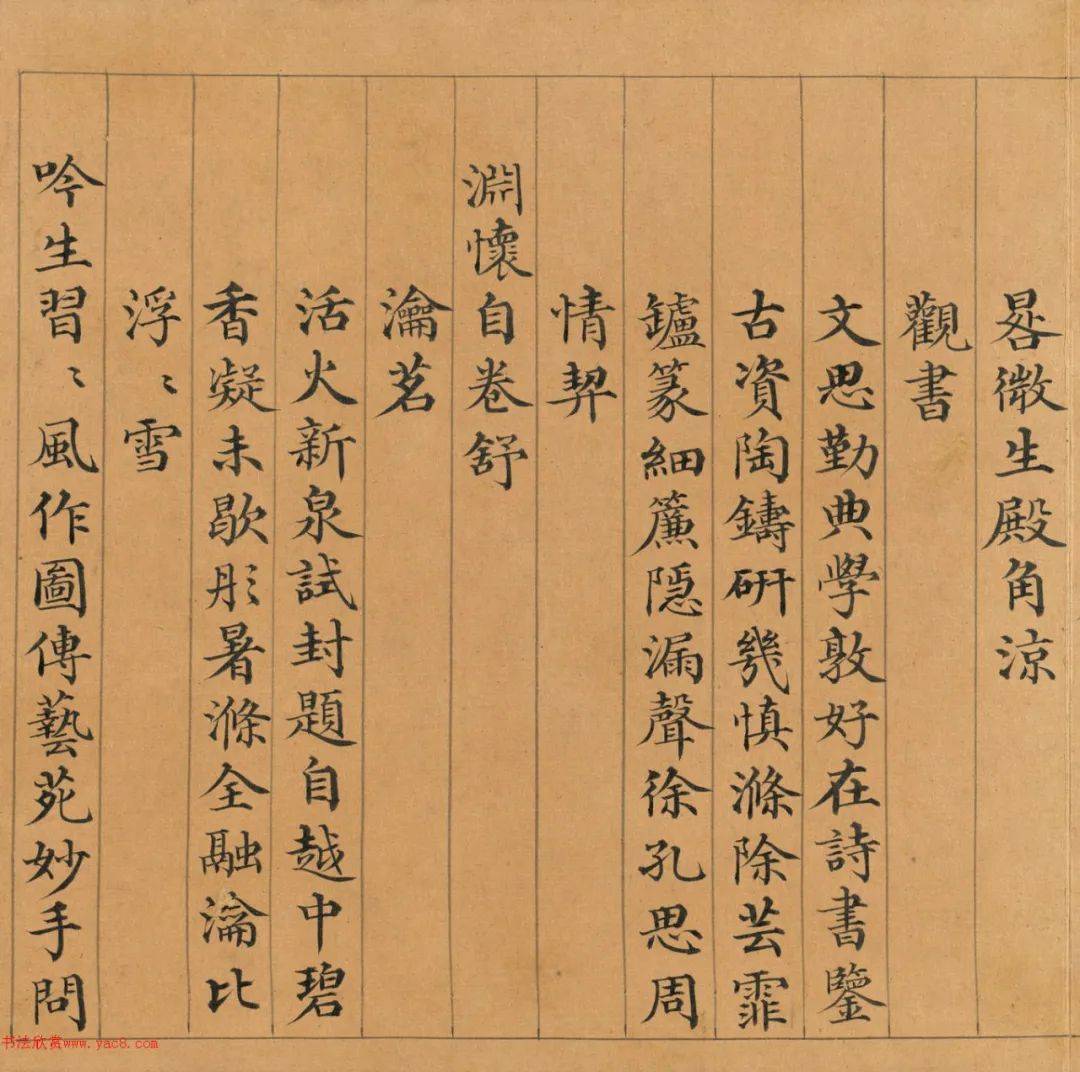 晷微生殿角涼
觀書
文思勤典學敦好在詩書鑒
古資陶鑄研幾慎滌除芸霏
鑪篆細簾隱漏聲徐孔思周
情契
淵懷自卷舒
瀹茗
活火新泉試封題自越中碧
香凝未歇彤暑滌全融淪比
浮〻雪
吟生習〻風作圖傳藝苑妙手問
书法欣赏www.yac8.com